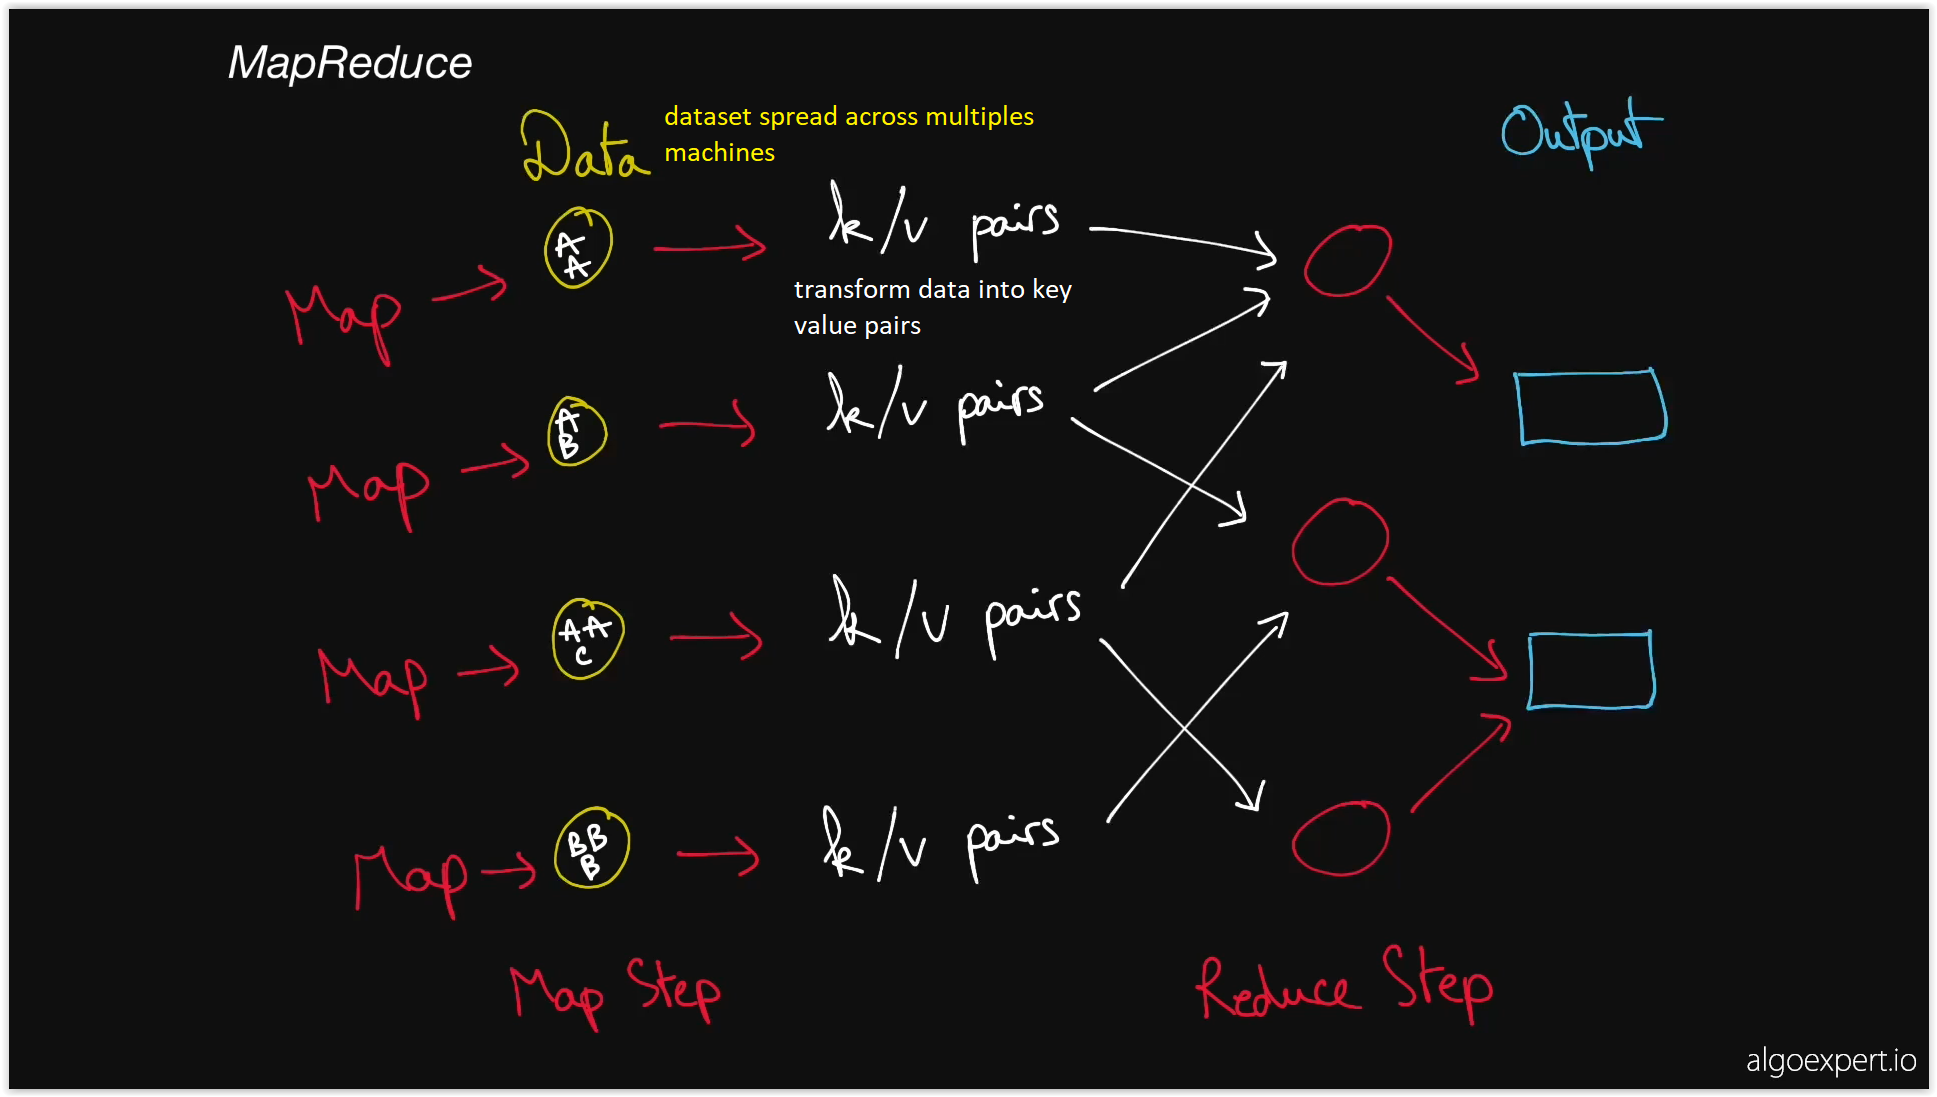 MapReduce
Data
dataset spread across multiples
machines
Output
Map
A
A
k/v pairs
transform data into key
value pairs
Map
A
B
k/v pairs
Map
AA
C
k/v pairs
Map
BB
B
k/v pairs
Map Step
Reduce Step
algoexpert.io